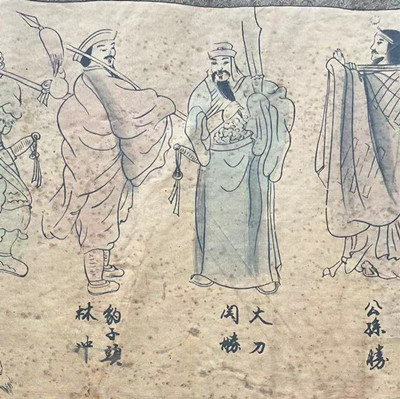 公孫勝
大刀
関勝
豹子頭
林冲